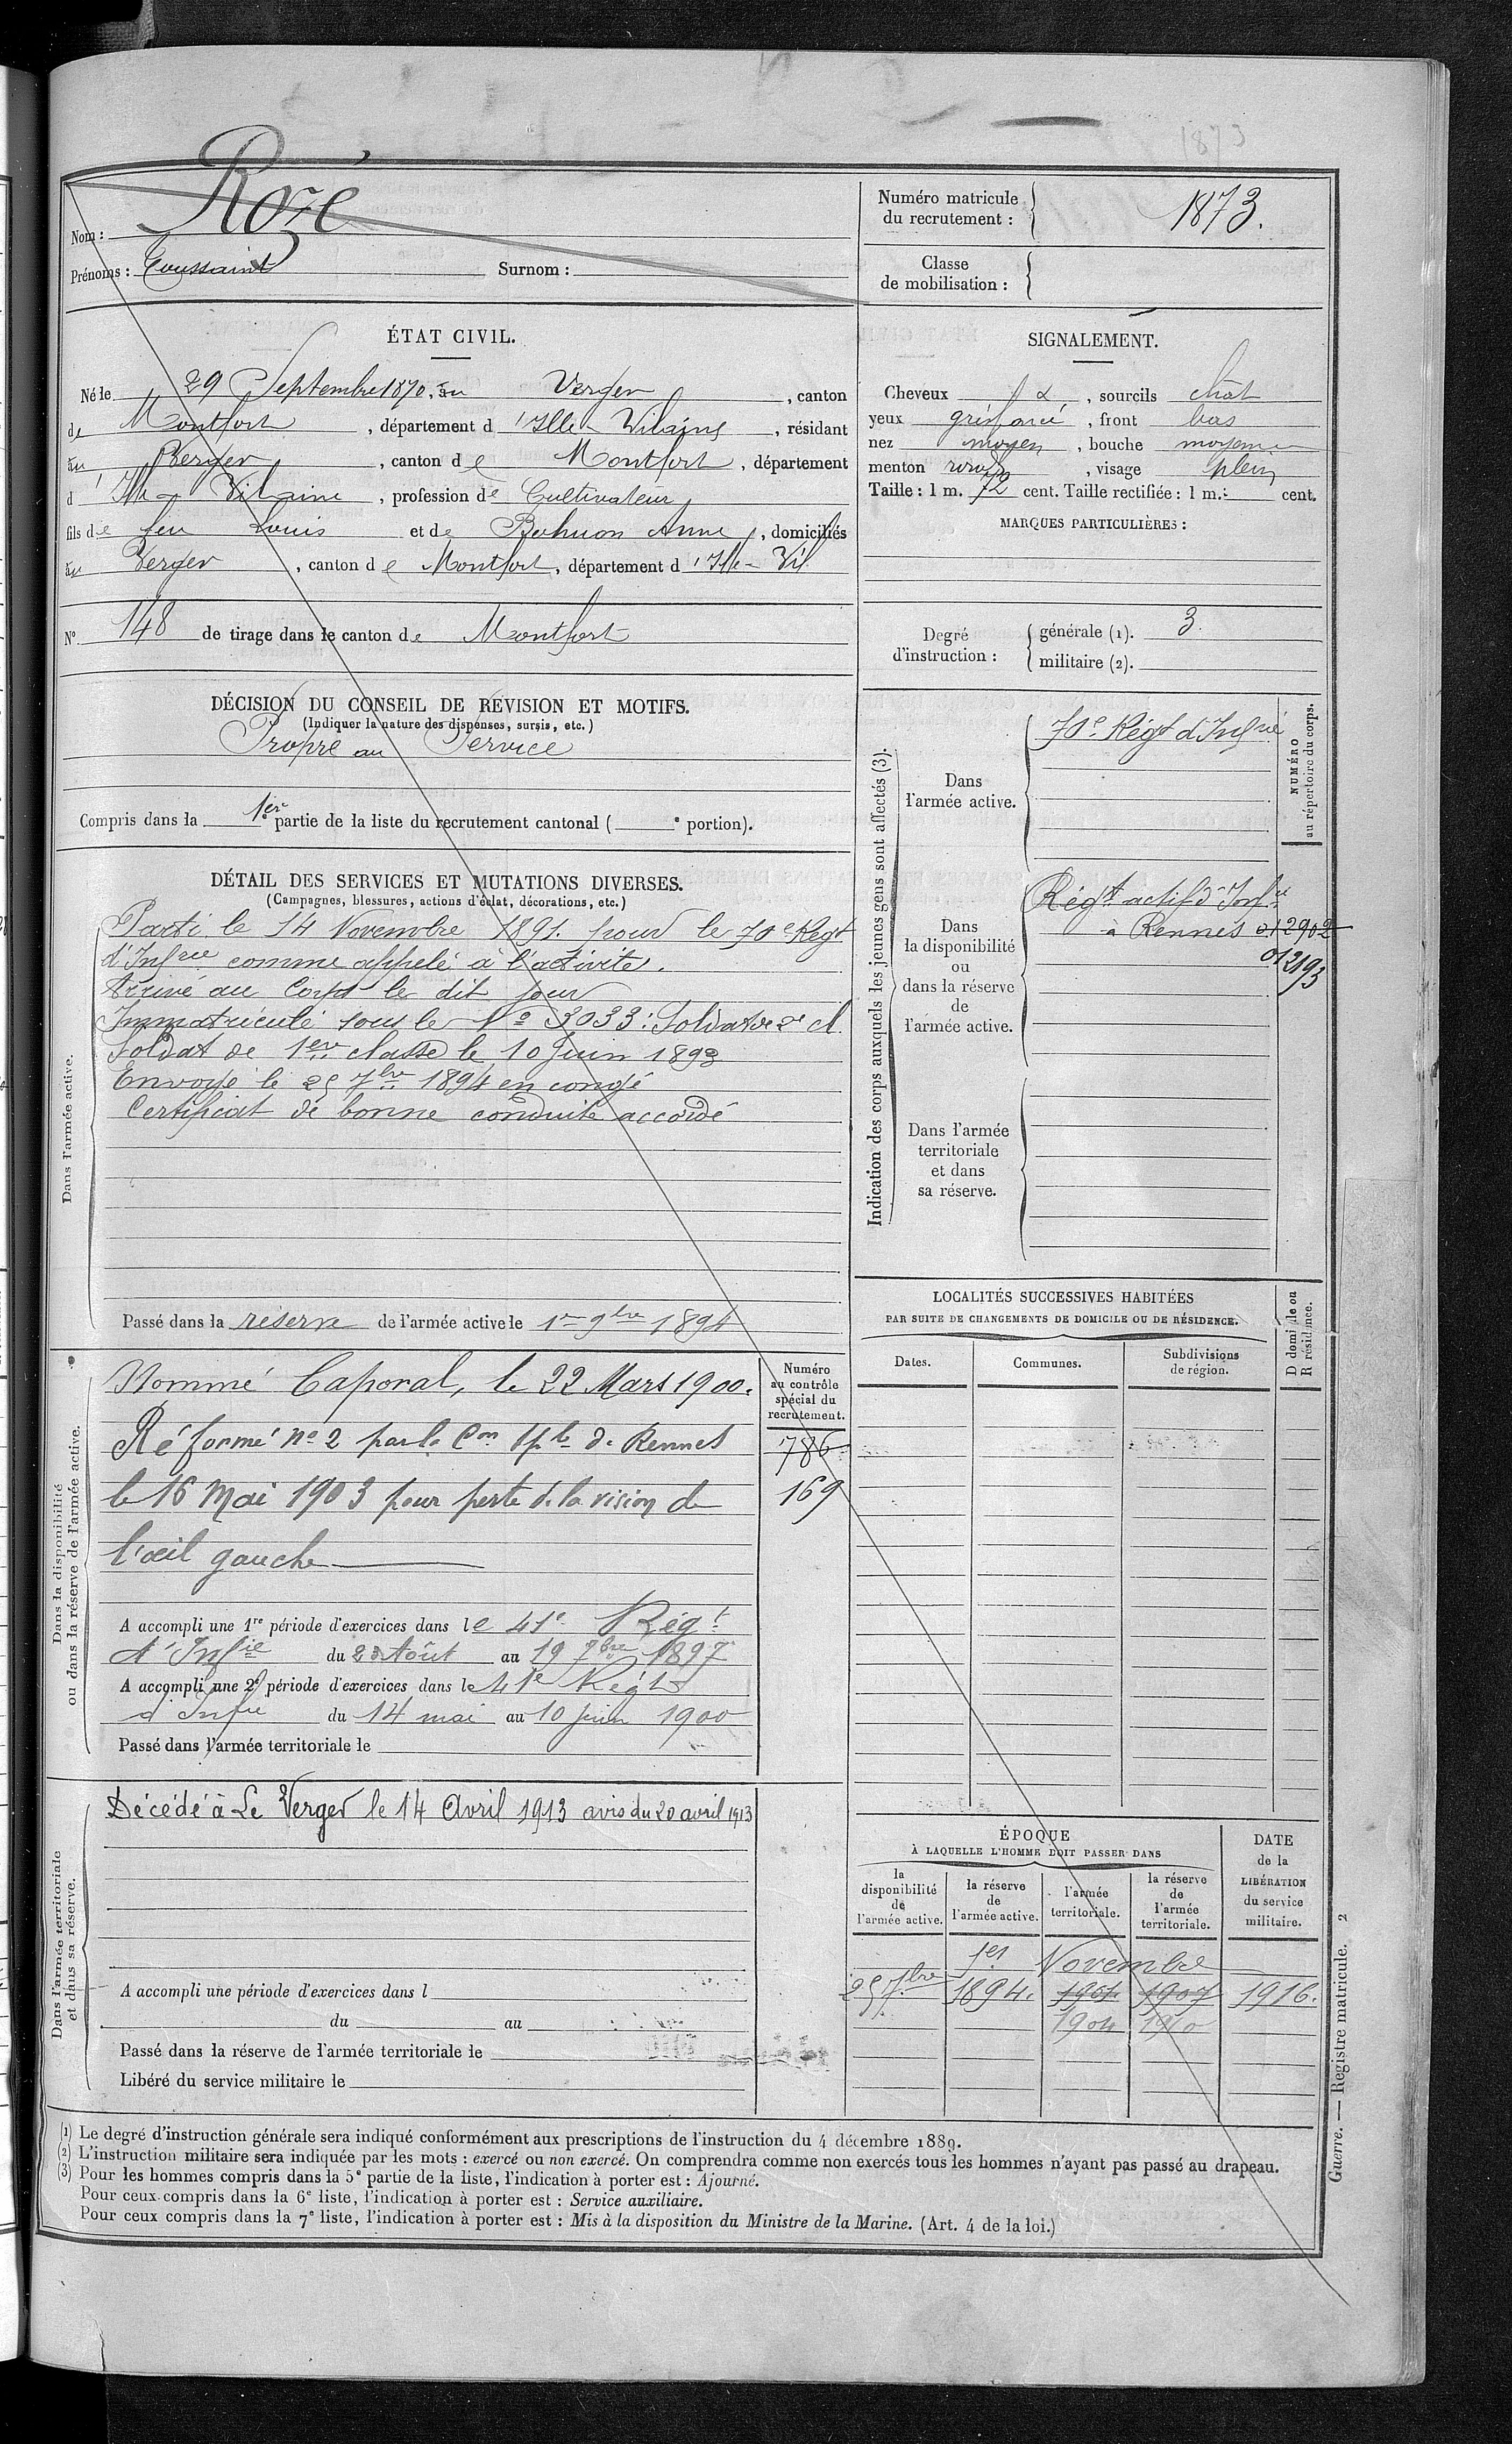 1873
Nom : Rozé
Prénoms : Toussaint Surnom :
Numéro matricule du recrutement : 1873.
Classe de mobilisation :
ÉTAT CIVIL.
Né le 29 Septembre 1870, au Verger, canton
de Montfort, département d'Ille-Vilaine, résidant
au Verger, canton de Montfort, département
d'Ille-Vilaine, profession de Cultivateur
fils de feu Louis et de Buhuon Anne, domiciliés
au Verger, canton de Montfort, département d'Ille-Vil
N° 148 de tirage dans le canton de Montfort
SIGNALEMENT.
Cheveux &, sourcils chât
yeux gris foncé, front bas
nez moyen, bouche moyenne
menton rond, visage plein
Taille : 1 m. 72 cent. Taille rectifiée : 1 m. cent.
MARQUES PARTICULIÈRES :
Degré d'instruction : générale (1). 3
militaire (2).
DÉCISION DU CONSEIL DE REVISION ET MOTIFS.
(Indiquer la nature des dispenses, sursis, etc.)
Propre au Service
Compris dans la 1ère partie de la liste du recrutement cantonal ( e portion).
DÉTAIL DES SERVICES ET MUTATIONS DIVERSES.
(Campagnes, blessures, actions d'éclat, décorations, etc.)
Dans l'armée active.
Parti le 14 Novembre 1891 pour le 70e Régt
d'Infrie comme appelé à l'activité.
Arrivé au Corps le dit jour
Immatriculé sous le No 3033 : Soldat de 2e cl.
Soldat de 1ere classe le 10 Juin 1893
Envoyé le 25 7bre 1894 en congé
Certificat de bonne conduite accordé
Passé dans la réserve de l'armée active le 1er 9bre 1894
Indication des corps auxquels les jeunes gens sont affectés (3).
NUMÉRO au répertoire du corps.
Dans l'armée active.
70e Régt d'Infrie
Dans la disponibilité ou dans la réserve de l'armée active.
Régt actif d'Infie
à Rennes 012902
012193
Dans l'armée territoriale et dans sa réserve.
LOCALITÉS SUCCESSIVES HABITÉES
PAR SUITE DE CHANGEMENTS DE DOMICILE OU DE RÉSIDENCE.
Dates. Communes. Subdivisions de région. D domicile ou R résidence.
Dans la disponibilité ou dans la réserve de l'armée active.
Numéro au contrôle spécial du recrutement.
786
169
Nommé Caporal, le 22 Mars 1900.
Réformé no 2 par la Con Sple de Rennes
le 16 Mai 1903 pour perte de la vision de
l'œil gauche
A accompli une 1re période d'exercices dans le 41e Régt
d'Infie du 23 Août au 19 7bre 1897
A accompli une 2e période d'exercices dans le 41e Régt
d'Infie du 14 mai au 10 juin 1900
Passé dans l'armée territoriale le
Dans l'armée territoriale et dans sa réserve.
Décédé à Le Verger le 14 Avril 1913 avis du 20 avril 1913
A accompli une période d'exercices dans l
du au
Passé dans la réserve de l'armée territoriale le
Libéré du service militaire le
ÉPOQUE
À LAQUELLE L'HOMME DOIT PASSER DANS
la disponibilité de l'armée active. la réserve de l'armée active. l'armée territoriale. la réserve de l'armée territoriale.
DATE de la LIBÉRATION du service militaire.
1er Novembre
25 7bre 1894. 1901 1907 1916.
1904 1910
Guerre. — Registre matricule. 2
(1) Le degré d'instruction générale sera indiqué conformément aux prescriptions de l'instruction du 4 décembre 1889.
(2) L'instruction militaire sera indiquée par les mots : exercé ou non exercé. On comprendra comme non exercés tous les hommes n'ayant pas passé au drapeau.
(3) Pour les hommes compris dans la 5e partie de la liste, l'indication à porter est : Ajourné.
Pour ceux compris dans la 6e liste, l'indication à porter est : Service auxiliaire.
Pour ceux compris dans la 7e liste, l'indication à porter est : Mis à la disposition du Ministre de la Marine. (Art. 4 de la loi.)